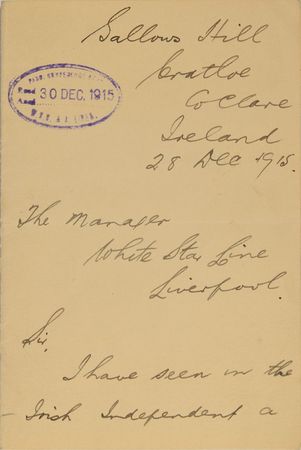 Gallows Hill
Cratloe
Co Clare
Ireland
28 Dec 1915.
30 DEC. 1915
The Manager
White Star Line
Liverpool.
Sir,
I have seen in the
Irish Independent a